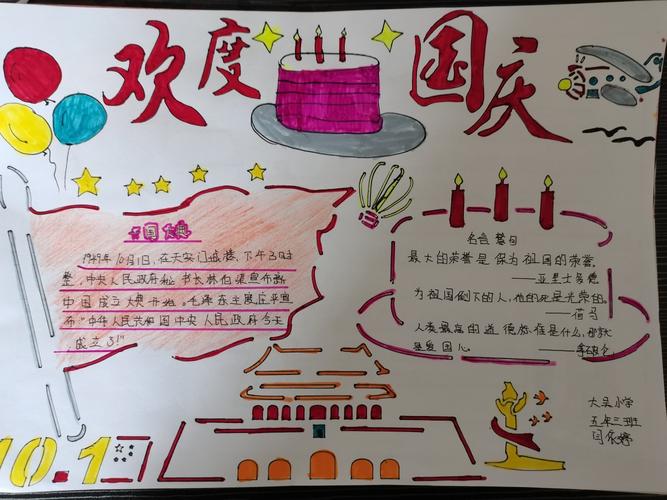 欢度国庆
开国大典
1949年10月1日,在天安门城楼,下午3时
整,中央人民政府秘书长林伯渠宣布新
中国成立大典开始。毛泽东主席庄严宣
布"中华人民共和国中央人民政府今天
成立了!"
名言警句
最大的荣誉是保为祖国的荣誉。
——亚里士多德
为祖国倒下的人,他的死是光荣的。
——荷马
人类最高的道德标准是什么,那就
是爱国心。
10.1
大吴小学
五年三班